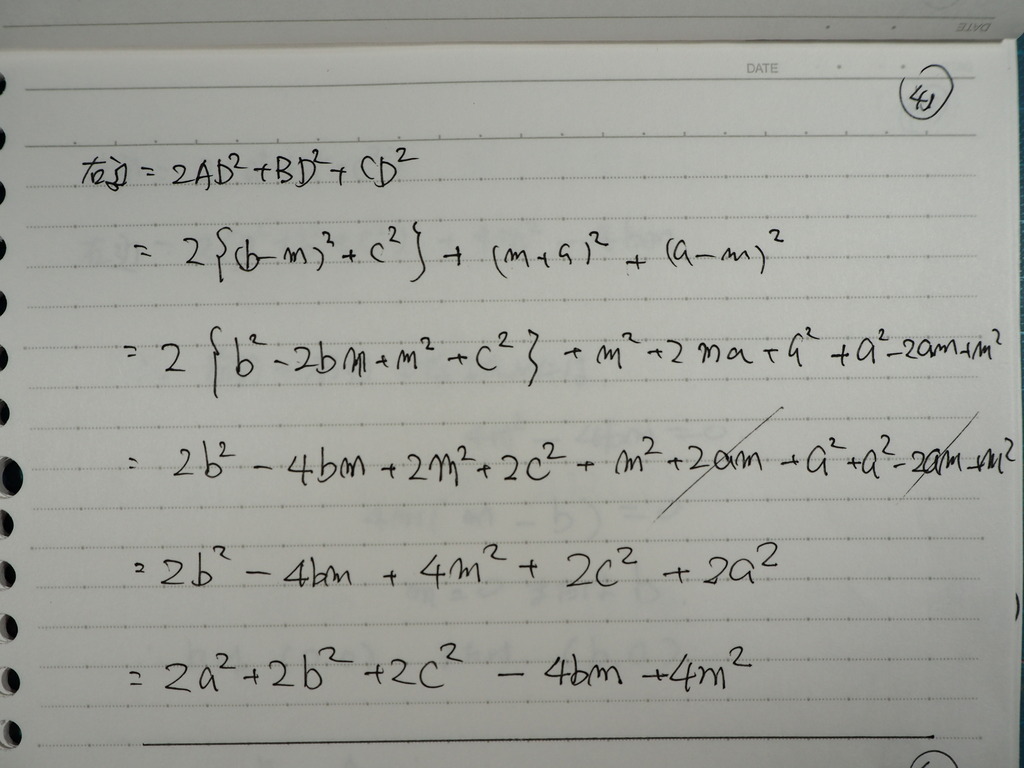 DATE
DATE
41
右辺 = 2AD² + BD² + CD²
= 2{(b-m)² + c²} + (m+a)² + (a-m)²
= 2{b² - 2bm + m² + c²} + m² + 2ma + a² + a² - 2am + m²
= 2b² - 4bm + 2m² + 2c² + m² + 2am + a² + a² - 2am + m²
= 2b² - 4bm + 4m² + 2c² + 2a²
= 2a² + 2b² + 2c² - 4bm + 4m²